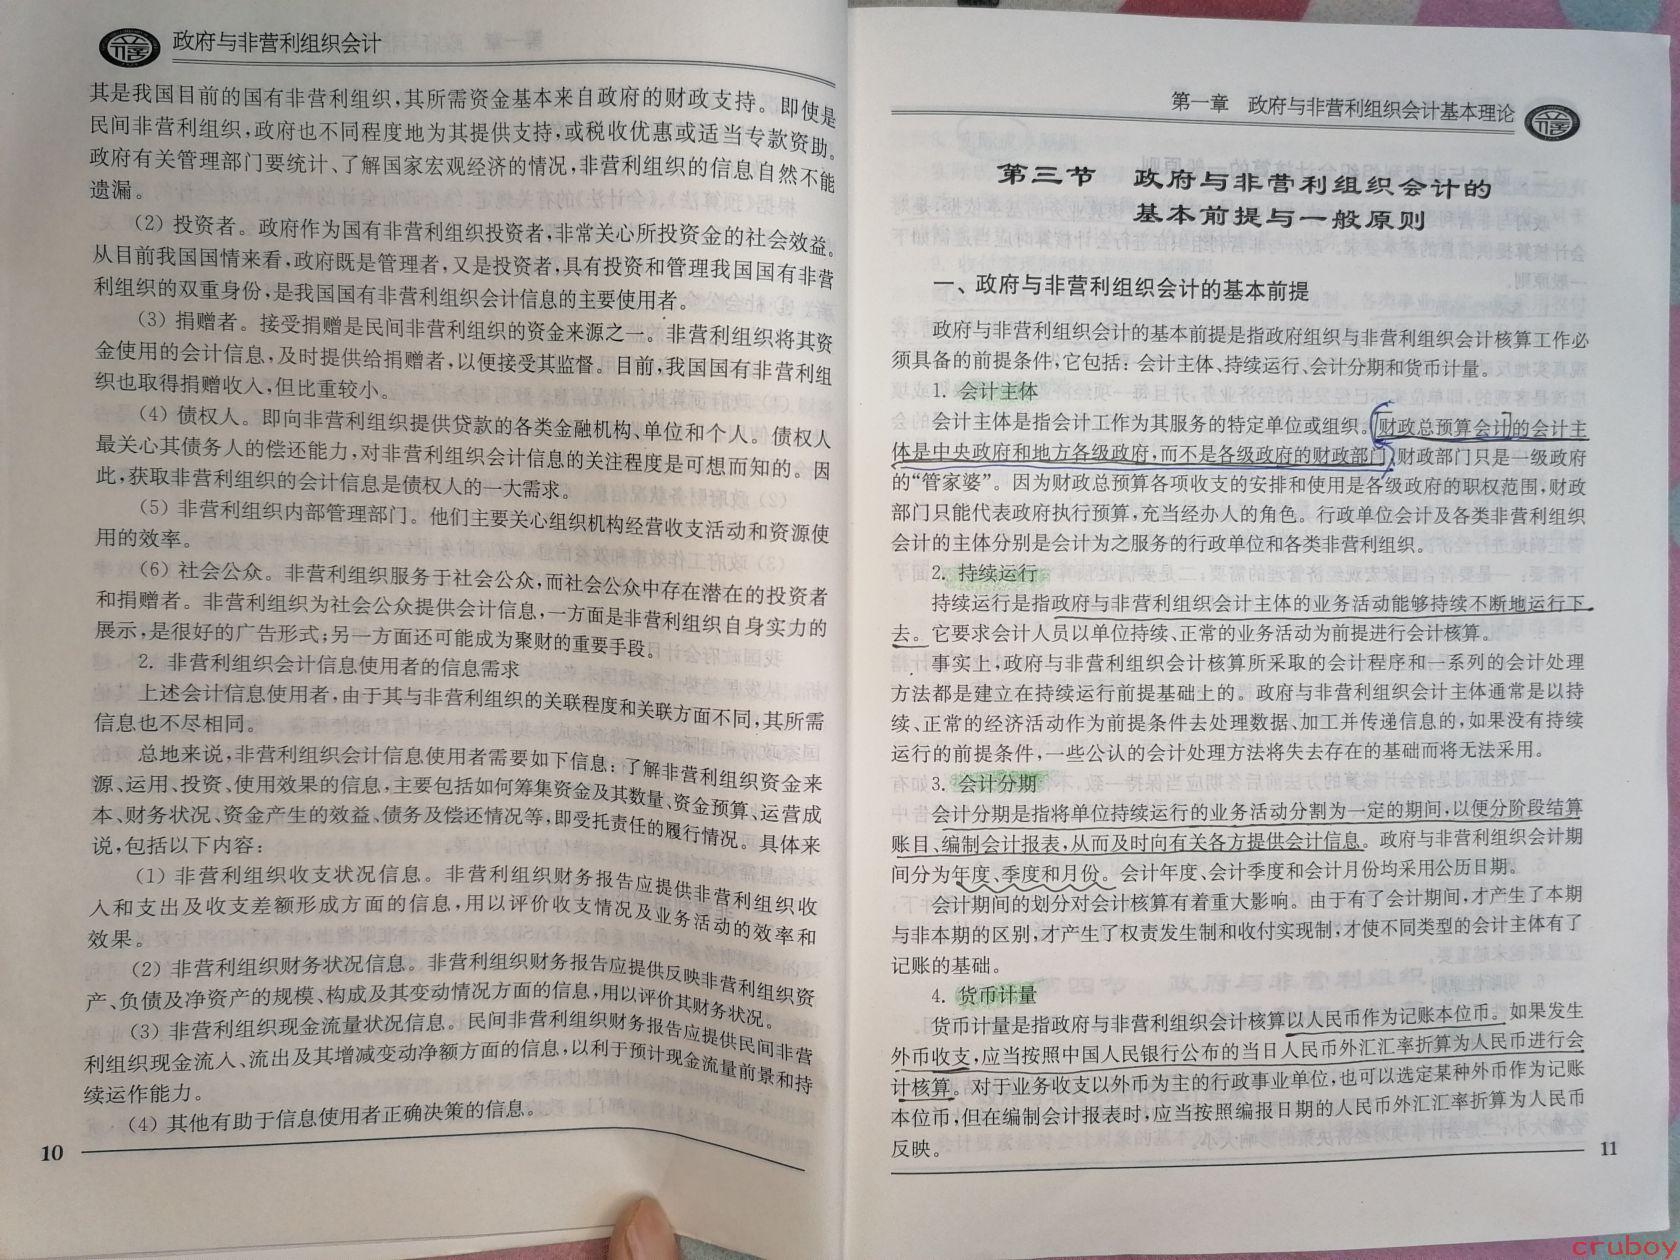 政府与非营利组织会计
其是我国目前的国有非营利组织,其所需资金基本来自政府的财政支持。即使是
民间非营利组织,政府也不同程度地为其提供支持,或税收优惠或适当专款资助。
政府有关管理部门要统计、了解国家宏观经济的情况,非营利组织的信息自然不能
遗漏。
(2) 投资者。政府作为国有非营利组织投资者,非常关心所投资金的社会效益。
从目前我国国情来看,政府既是管理者,又是投资者,具有投资和管理我国国有非营
利组织的双重身份,是我国国有非营利组织会计信息的主要使用者。
(3) 捐赠者。接受捐赠是民间非营利组织的资金来源之一。非营利组织将其资
金使用的会计信息,及时提供给捐赠者,以便接受其监督。目前,我国国有非营利组
织也取得捐赠收入,但比重较小。
(4) 债权人。即向非营利组织提供贷款的各类金融机构、单位和个人。债权人
最关心其债务人的偿还能力,对非营利组织会计信息的关注程度是可想而知的。因
此,获取非营利组织的会计信息是债权人的一大需求。
(5) 非营利组织内部管理部门。他们主要关心组织机构经营收支活动和资源使
用的效率。
(6) 社会公众。非营利组织服务于社会公众,而社会公众中存在潜在的投资者
和捐赠者。非营利组织为社会公众提供会计信息,一方面是非营利组织自身实力的
展示,是很好的广告形式;另一方面还可能成为聚财的重要手段。
2. 非营利组织会计信息使用者的信息需求
上述会计信息使用者,由于其与非营利组织的关联程度和关联方面不同,其所需
信息也不尽相同。
总地来说,非营利组织会计信息使用者需要如下信息:了解非营利组织资金来
源、运用、投资、使用效果的信息,主要包括如何筹集资金及其数量、资金预算、运营成
本、财务状况、资金产生的效益、债务及偿还情况等,即受托责任的履行情况。具体来
说,包括以下内容:
(1) 非营利组织收支状况信息。非营利组织财务报告应提供非营利组织收
入和支出及收支差额形成方面的信息,用以评价收支情况及业务活动的效率和
效果。
(2) 非营利组织财务状况信息。非营利组织财务报告应提供反映非营利组织资
产、负债及净资产的规模、构成及其变动情况方面的信息,用以评价其财务状况。
(3) 非营利组织现金流量状况信息。民间非营利组织财务报告应提供民间非营
利组织现金流入、流出及其增减变动净额方面的信息,以利于预计现金流量前景和持
续运作能力。
(4) 其他有助于信息使用者正确决策的信息。
10
第一章 政府与非营利组织会计基本理论
第三节 政府与非营利组织会计的
基本前提与一般原则
一、政府与非营利组织会计的基本前提
政府与非营利组织会计的基本前提是指政府组织与非营利组织会计核算工作必
须具备的前提条件,它包括:会计主体、持续运行、会计分期和货币计量。
1. 会计主体
会计主体是指会计工作为其服务的特定单位或组织。[财政总预算会计]的会计主
体是中央政府和地方各级政府,而不是各级政府的财政部门,财政部门只是一级政府
的“管家婆”。因为财政总预算各项收支的安排和使用是各级政府的职权范围,财政
部门只能代表政府执行预算,充当经办人的角色。行政单位会计及各类非营利组织
会计的主体分别是会计为之服务的行政单位和各类非营利组织。
2. 持续运行
持续运行是指政府与非营利组织会计主体的业务活动能够持续不断地运行下
去。它要求会计人员以单位持续、正常的业务活动为前提进行会计核算。
事实上,政府与非营利组织会计核算所采取的会计程序和一系列的会计处理
方法都是建立在持续运行前提基础上的。政府与非营利组织会计主体通常是以持
续、正常的经济活动作为前提条件去处理数据、加工并传递信息的,如果没有持续
运行的前提条件,一些公认的会计处理方法将失去存在的基础而将无法采用。
3. 会计分期
会计分期是指将单位持续运行的业务活动分割为一定的期间,以便分阶段结算
账目、编制会计报表,从而及时向有关各方提供会计信息。政府与非营利组织会计期
间分为年度、季度和月份。会计年度、会计季度和会计月份均采用公历日期。
会计期间的划分对会计核算有着重大影响。由于有了会计期间,才产生了本期
与非本期的区别,才产生了权责发生制和收付实现制,才使不同类型的会计主体有了
记账的基础。
4. 货币计量
货币计量是指政府与非营利组织会计核算以人民币作为记账本位币。如果发生
外币收支,应当按照中国人民银行公布的当日人民币外汇汇率折算为人民币进行会
计核算。对于业务收支以外币为主的行政事业单位,也可以选定某种外币作为记账
本位币,但在编制会计报表时,应当按照编报日期的人民币外汇汇率折算为人民币
反映。
11
cruboy